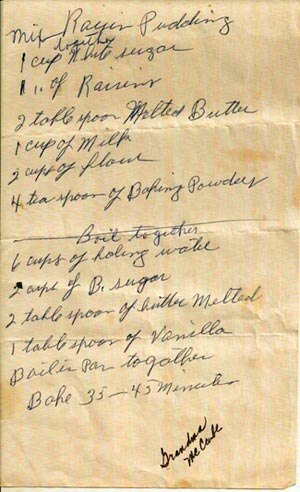 Raisin Pudding
Mix together
1 cup White sugar
1 " of Raisins
2 table spoon Melted Butter
1 cup of Milk
2 cups of flour
4 tea spoon of Baking Powder
Boil together
6 cups of boling water
2 cups of B. sugar
2 table spoon of butter Melted
1 table spoon of Vanilla
Boil in Pan togather
Bake 35 - 45 Minutes
Grandma
McCabe